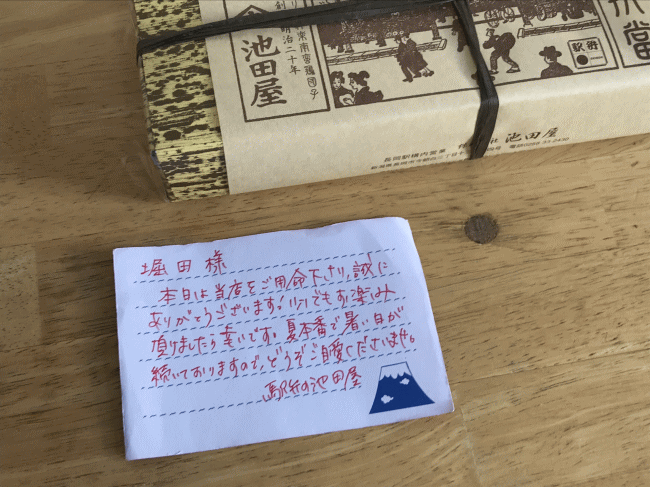 池田屋
明治二十年
駅弁
弁当
長岡駅構内営業
池田屋
堀田様
本日は当店をご用命下さり、誠に
ありがとうございます。少しでもお楽しみ
頂けましたら幸いです。夏本番で暑い日が
続いておりますので、どうぞご自愛くださいませ。
駅弁の池田屋